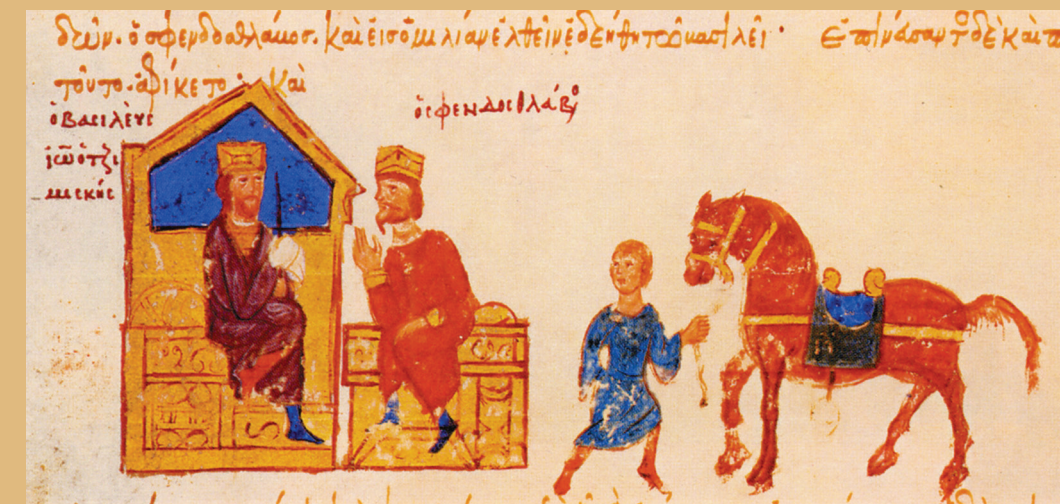 ὁ σφενδοσθλάβος. καὶ εἰς ὁμιλίαν ἐλθεῖν ἐδεήθη τῶ βασιλεῖ · ἐπινεύσαντος δὲ καὶ
τούτου. ἀφίκετο · καὶ
ὁ βασιλεὺς
ἰω ὁ τζι
μισκής
ὁ σφενδοσθλάβος